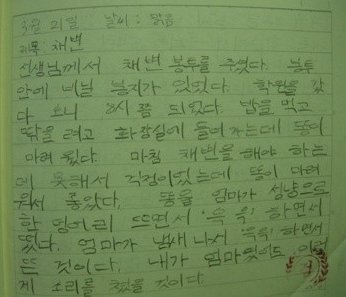 3월 21일 날씨: 맑음
제목: 채변
선생님께서 채변 봉투를 주셨다. 봉투
안에 비닐 봉지가 있었다. 학원을 갔
다 오니 8시쯤 되었다. 밥을 먹고
딲을 려고 화장실에 들어가는데 똥이
마려 웠다. 마침 채변을 해야 하는
데 못해서 걱정이었는데 똥이 마려
워서 좋았다. 똥을 엄마가 성냥으로
한 덩어리 뜨면서 '윽 윽' 하면서
떴다. 엄마가 냄새 나서 '윽윽' 하면서
뜬 것이다. 내가 엄마였어도 이렇
게 소리를 쳤을 것이다.